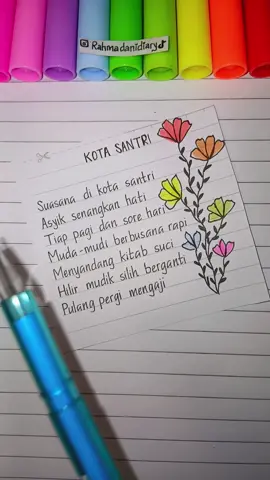 Rahmadanidiary
KOTA SANTRI
Suasana di kota santri
Asyik senangkan hati
Tiap pagi dan sore hari
Muda-mudi berbusana rapi
Menyandang kitab suci
Hilir mudik silih berganti
Pulang pergi mengaji